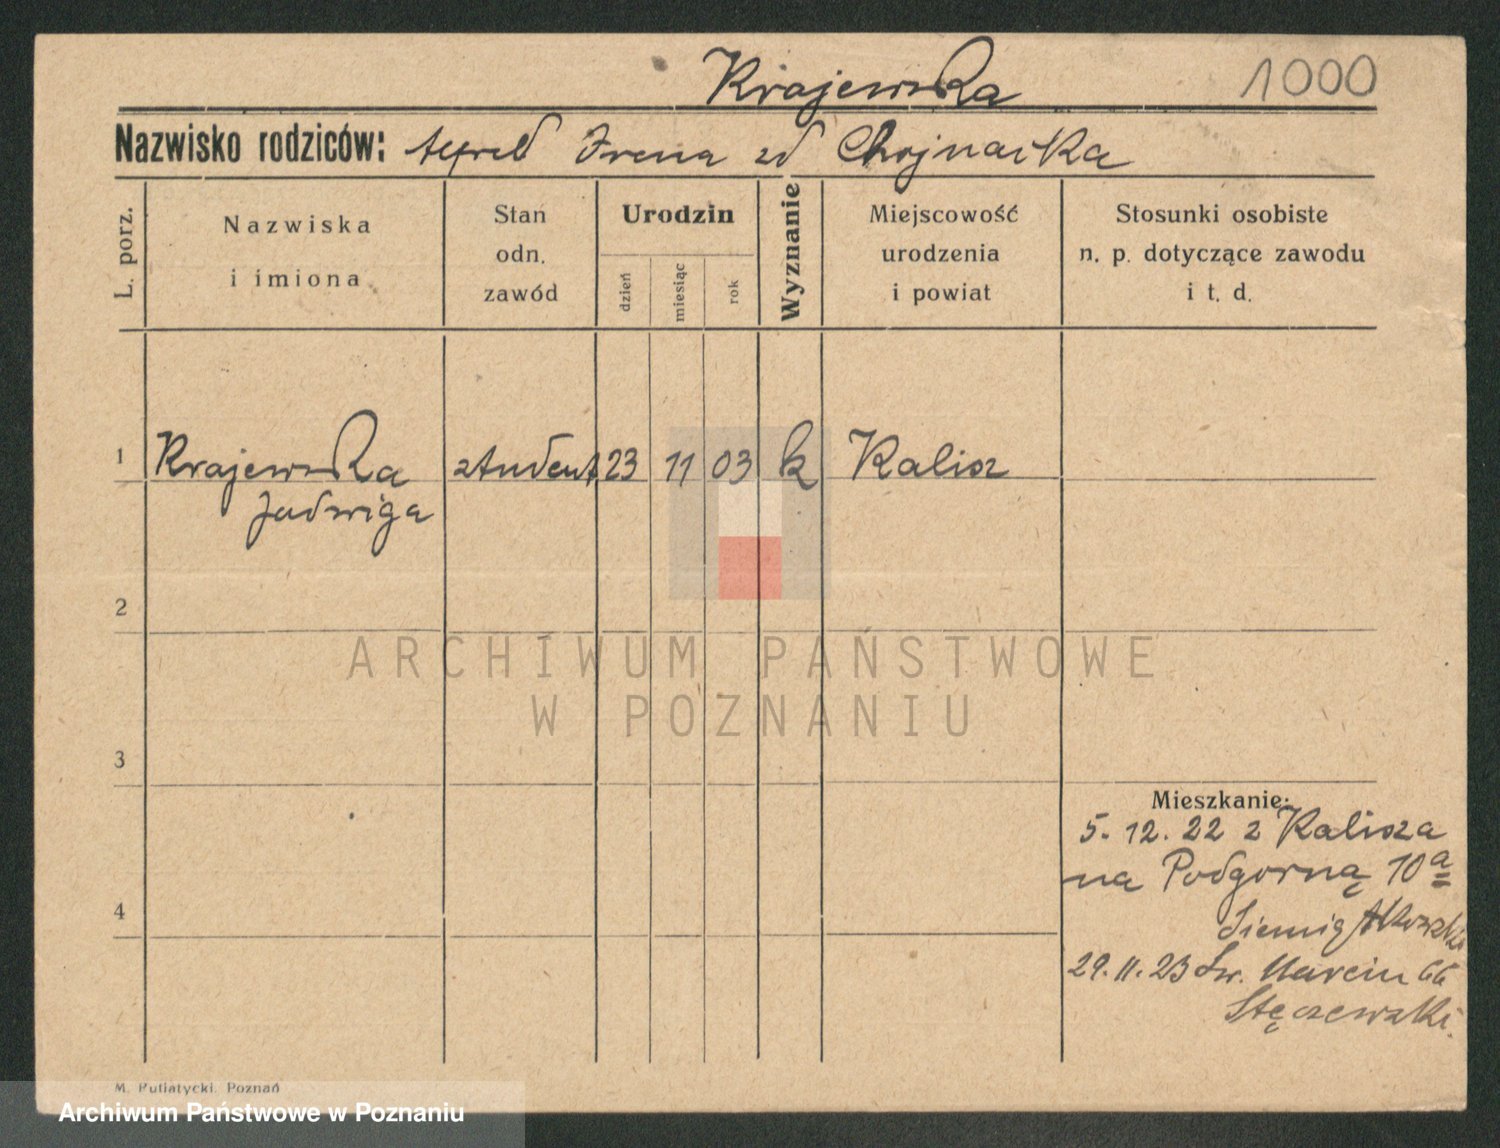 Krajewska 1000
Nazwisko rodziców: Alfred Irena zd Chojnacka
L. porz.
Nazwiska
i imiona
Stan
odn.
zawód
Urodzin
dzień
miesiąc
rok
Wyznanie
Miejscowość
urodzenia
i powiat
Stosunki osobiste
n. p. dotyczące zawodu
i t. d.
1 Krajewska student 23 11 03 k Kalisz
Jadwiga
2
ARCHIWUM PAŃSTWOWE
W POZNANIU
3
Mieszkanie:
5. 12. 22 z Kalisza
na Podgorną 10a
4
29. 11. 23 Św. Marcin 66
Stęszewski.
M. Putiatycki. Poznań
Archiwum Państwowe w Poznaniu